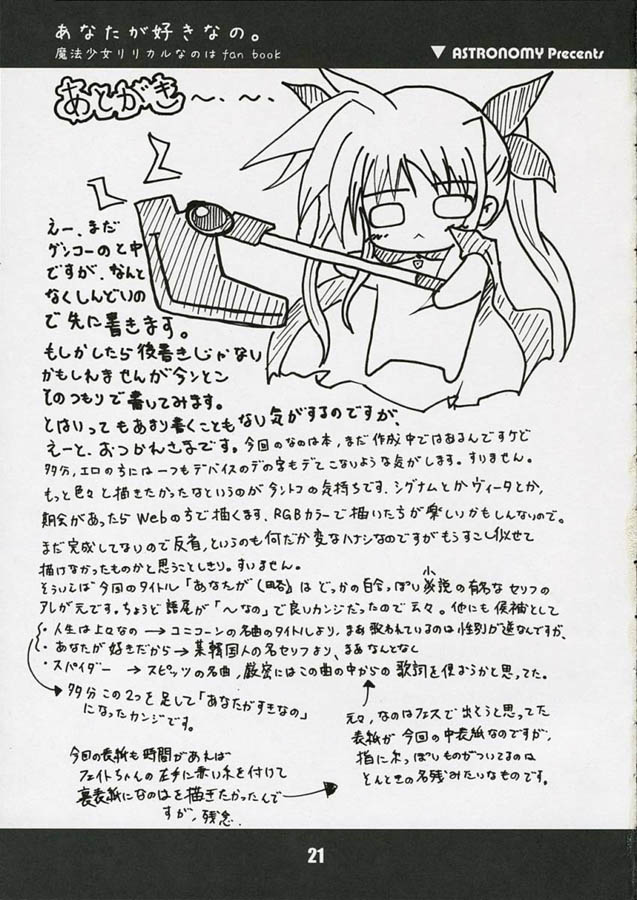 あなたが好きなの。
魔法少女リリカルなのは fan book
▼ ASTRONOMY Precents
あとがき〜・〜・
えー、まだ
ゲンコーのと中
ですが、なんと
なくしんどいの
で先に書きます。
もしかしたら後書きじゃない
かもしれませんが今ンとこ
そのつもりで書いてみます。
とはいってもあまり書くこともない気がするのですが、
えーと、おつかれさまです。今回のなのは本、まだ作成中ではあるんですケど
多分、エロのちには一つもデバイスのデの字もデてこないような気がします。すいません。
もっと色々と描きたかったなというのが今ントコの気持ちです、シグナムとかヴィータとか、
機会があったらWebの方で描くます、RGBカラーで描いたちが楽しいかもしんないので。
まだ完成してないので反省、というのも何だか変なハナシなのですがもうすこし似せて
描けなかったものかと思うことしきり。すいません。
そういえば今回のタイトル「あなたが(略)」は どっかの自分っぽい 小説の有名なセリフの
アレが元です。ちょうど語尾が「〜なの」で良いカンジだったので云々。他にも候補として
・人生は上々なの → ユニコーンの名曲のタイトルより、まあ歌われているのは性別が逆なんですが、
・あなたが好きだから → 某韓国人の名セリフより、まあなんとなく
・スパイダー → スピッツの名曲、厳密にはこの曲の中からの歌詞を使おうかと思ってた。
多分この2つを足して「あなたがすきなの」
になったカンジです。
元々、なのはフェスで出そうと思ってた
表紙が今回の中表紙なのですが、
指に糸っぽいものがついてるのは
そんときの名残みたいなものです。
今回の表紙も時間があれば
フェイトちゃんの左手に赤い糸を付けて
裏表紙になのはを描きたかったんで
すが、残念
21